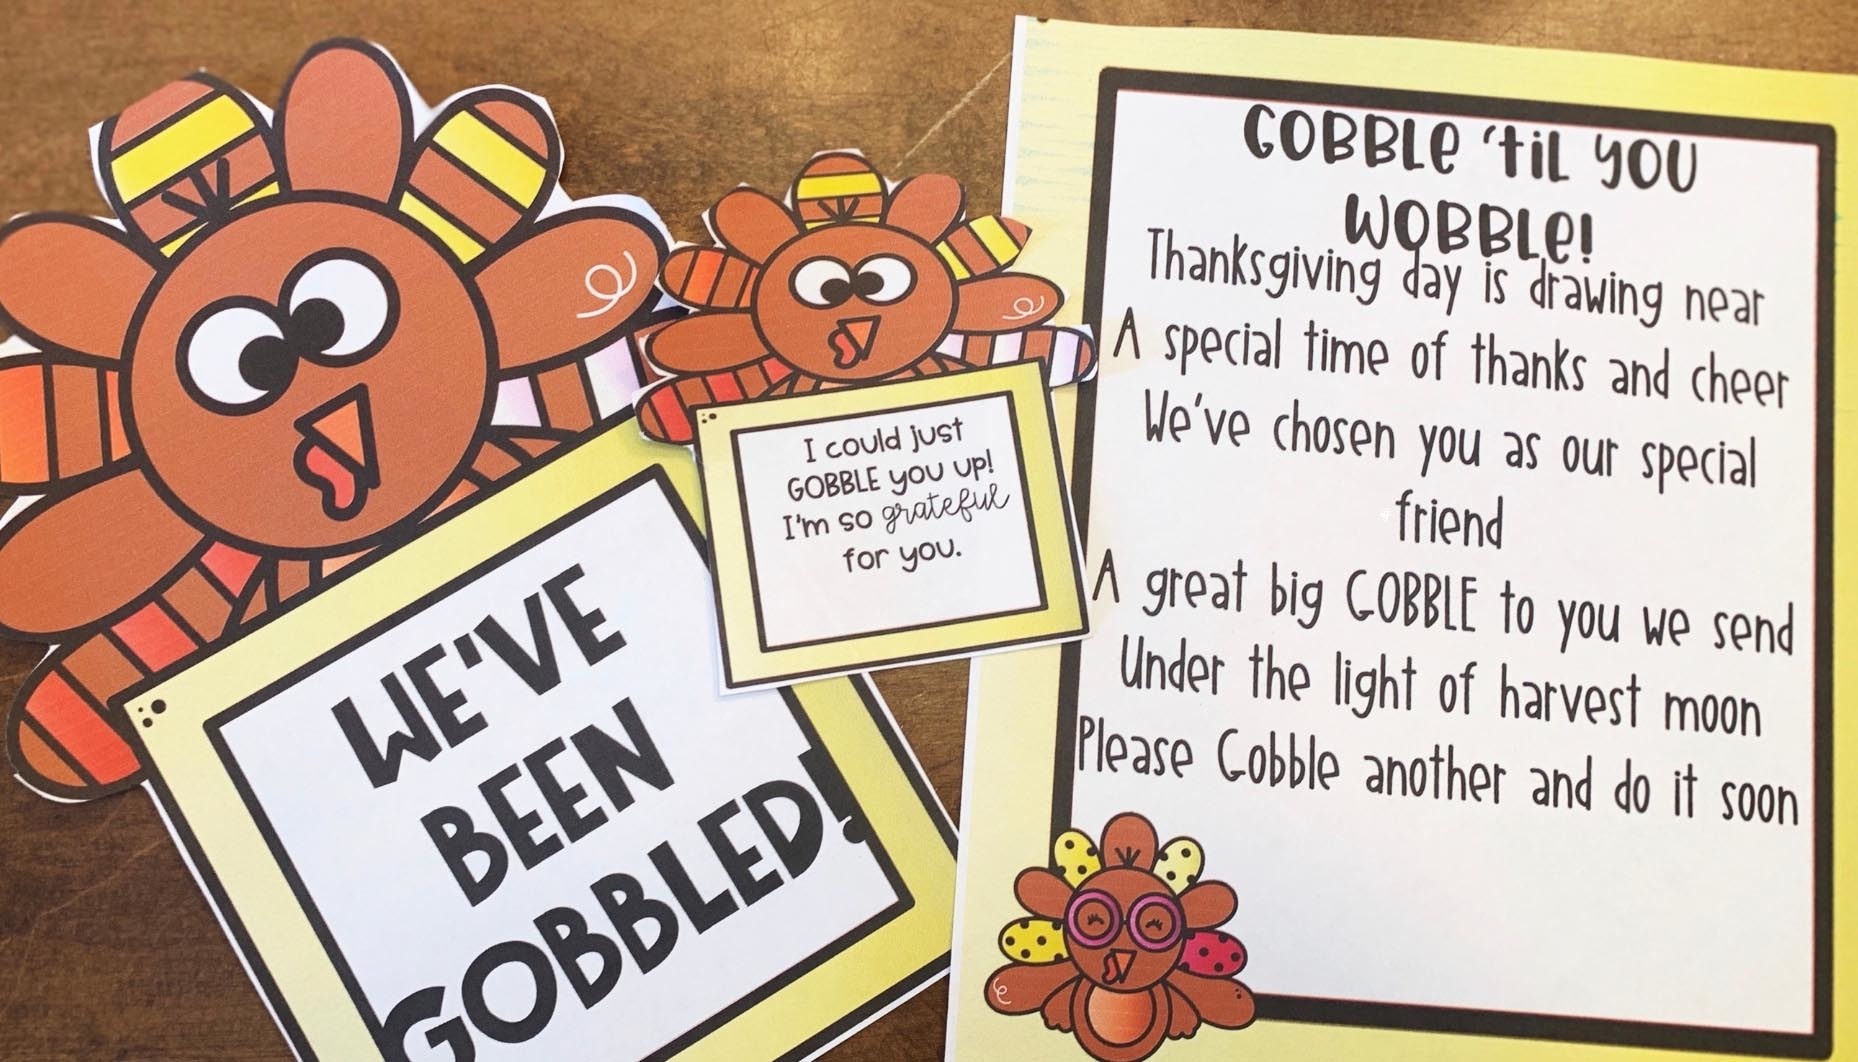 WE'VE
BEEN
GOBBLED!
I could just
GOBBLE you up!
I'm so grateful
for you.
GOBBLE 'til YOU
WOBBLE!
Thanksgiving day is drawing near
A special time of thanks and cheer
We've chosen you as our special
friend
A great big GOBBLE to you we send
Under the light of harvest moon
Please Gobble another and do it soon